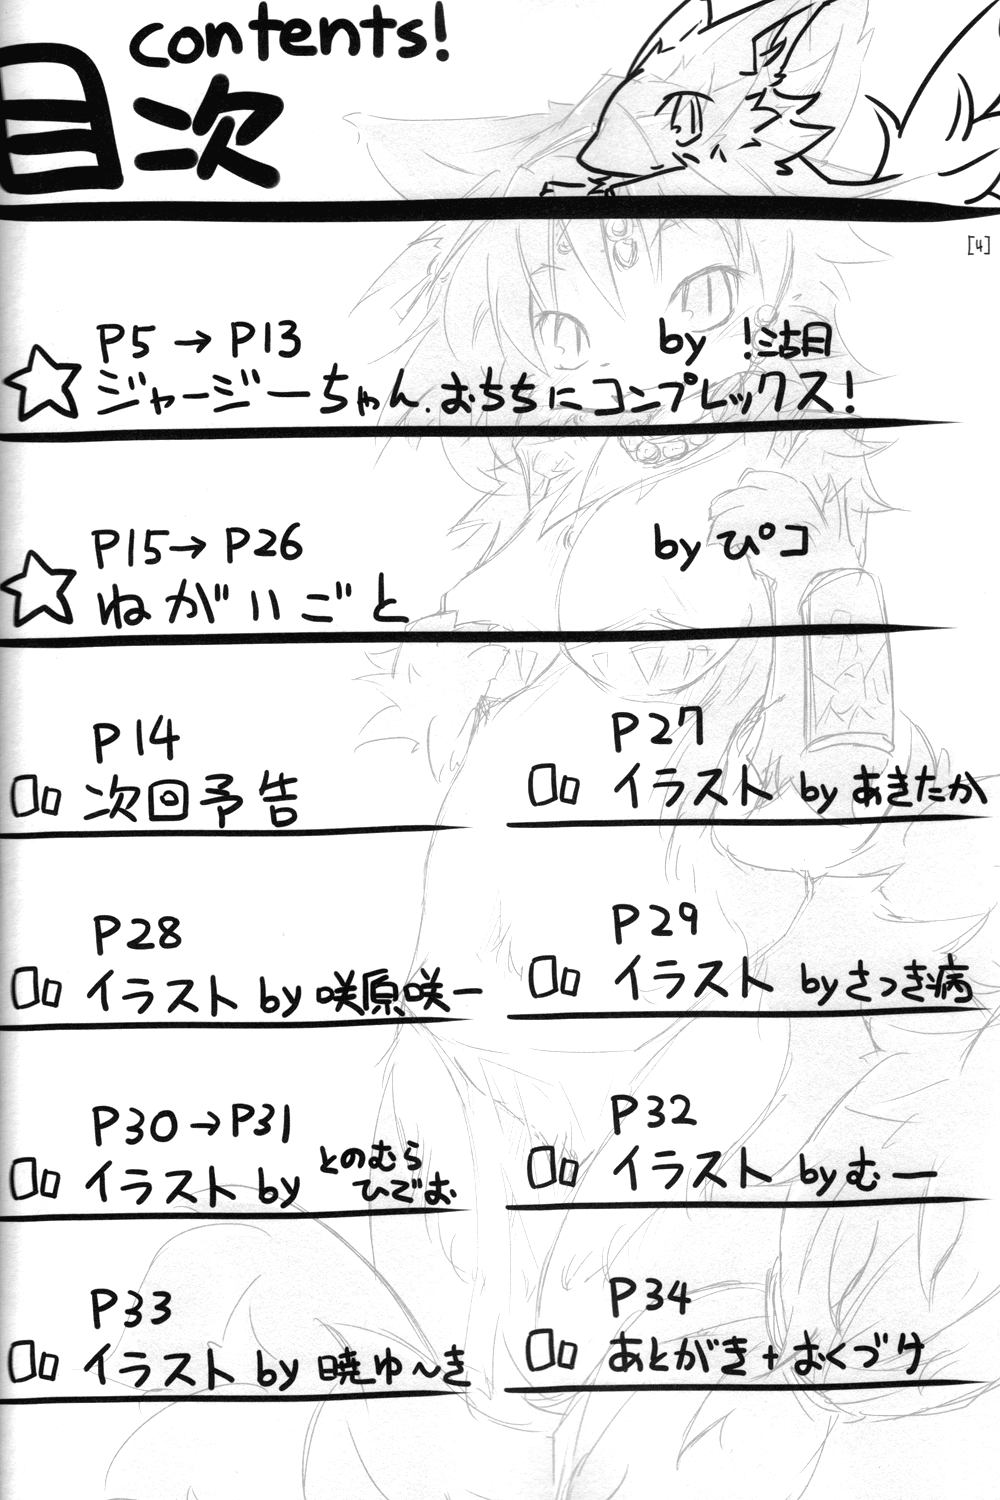 contents!
目次
[4]
P5 → P13
by !瑚月
ジャージーちゃん、おちちにコンプレックス!
P15→ P26
by ぴコ
ねがいごと
P14
次回予告
P27
イラスト by あきたか
P28
イラスト by 咲原咲一
P29
イラスト by さつき病
P30→P31
イラスト by とのむら
ひでお
P32
イラスト by むー
P33
イラスト by 暁ゆ〜き
P34
あとがき+おくづけ